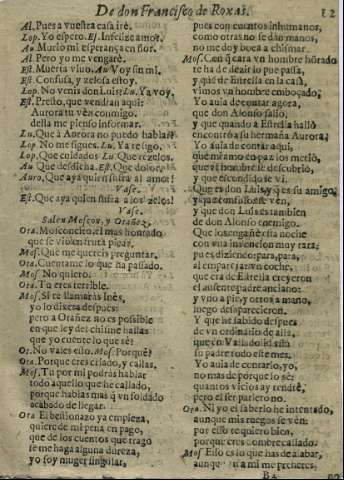 De don Francisco de Roxas. 12
Al. Pues a vuestra casa irè.
Lop. Yo espero. Es. Infelize amor.
Au. Muriò mi esperança en flor.
Al. Pero yo me vengarè.
Est. Muerta vivo. Au. Voy sin mi.
Est. Confusa, y zelosa estoy.
Lop. No venis don Luis? Lu. Ya voy.
Est. Presto, que vendran aqui:
Aurora tu vèn conmigo.
della me pienso informar.
Lu. Que à Aurora no puedo hablar?
Lop. No me sigues. Lu. Ya te sigo.
Lop. Que cuidados Lu. Que rezelos.
Au. Que desdicha. Est. Que dolor.
Auro. Que aya quien sufra al amor!
Vase.
Est. Que aya quien sufra a los zelos!
Vase.
Salen Moscon, y Orañez.
Ora. Mosconcico, el mas honrado
que se viò en fruta picas,
Mos. Que me quereis preguntar.
Ora. Cuentame lo que ha passado.
Mos. No quiero.
Ora. Tu eres terrible.
Mos. Si te llamaràs Inès,
yo lo dixera despues:
pero a Orañez no es possible
en que ley del chisme hallas
que yo cuente lo que sè?
Or. No vales esto. Mos. Porquè?
Ora. Porque eres criado, y callas.
Mos. Tu por mi podràs hablar
todo aquello que he callado,
porque hablas mas q̃ vn soldado
acabado de llegar.
Ora. El bestionazo ya empieza,
quiere de mi pena en pago,
que de los cuentos que trago
se me haga alguna dureza,
yo soy muger singular,
pues con cuentos inhumanos,
como otras no se dàn manos,
no me doy boca a chismar.
Mos. Con q̃ cara vn hombre hõrado
te ha de dezir lo que passa,
y que de Estrella en la casa
vimos vn hombre emboçado,
Yo auia de contar agora,
que don Alonso saliò,
y que quando a Estrella hallò
encontrò a su hermana Aurora,
Yo auia de contar aqui,
que mi amo en paz los metiò,
que el hombre le descubriò,
y que escondido le vi.
Que es don Luis, y q̃ es su amigo
y que don Luis es tambien
de don Alonso enemigo.
Que los engañè su noche
con vna inuencion muy rara:
pues diziendo: para, para,
al emparejar vn coche,
que era de Estrella creyeron
el ausente padre anciano:
y vno a pie, y otros a mano,
luego desaparecieron.
Y que he sabido despues
de vn ordinario de allà,
que en Valladolid està
su padre todo este mes,
Yo auia de contarlo, yo,
no mas de porque lo sè?
quantos vicios ay tendrè,
pero el ser parlero no.
Ora. Ni yo el saberlo he intentado,
aunque mis ruegos se vèn:
por esso te quiero bien,
porque eres hombre callado.
Mos. Esso es lo que has de alabar,
aunque tu a mi me prefieres,
B 4